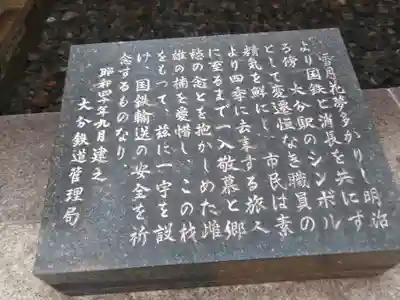 雪月花夢多かりし明治
より国鉄と消長を共にす
る傍 大分駅のシンボル
として変遷恒なき職員の
精気を鮮にし 市民は素
より四季に去来する旅人
に至るまで一入敬慕と郷
愁の念とを抱かしめた雌
雄の楠を愛惜し この枝
をもって 茲に一宇を設
け 国鉄輸送の安全を祈
念するものなり
昭和四十年九月建之
大分鉄道管理局